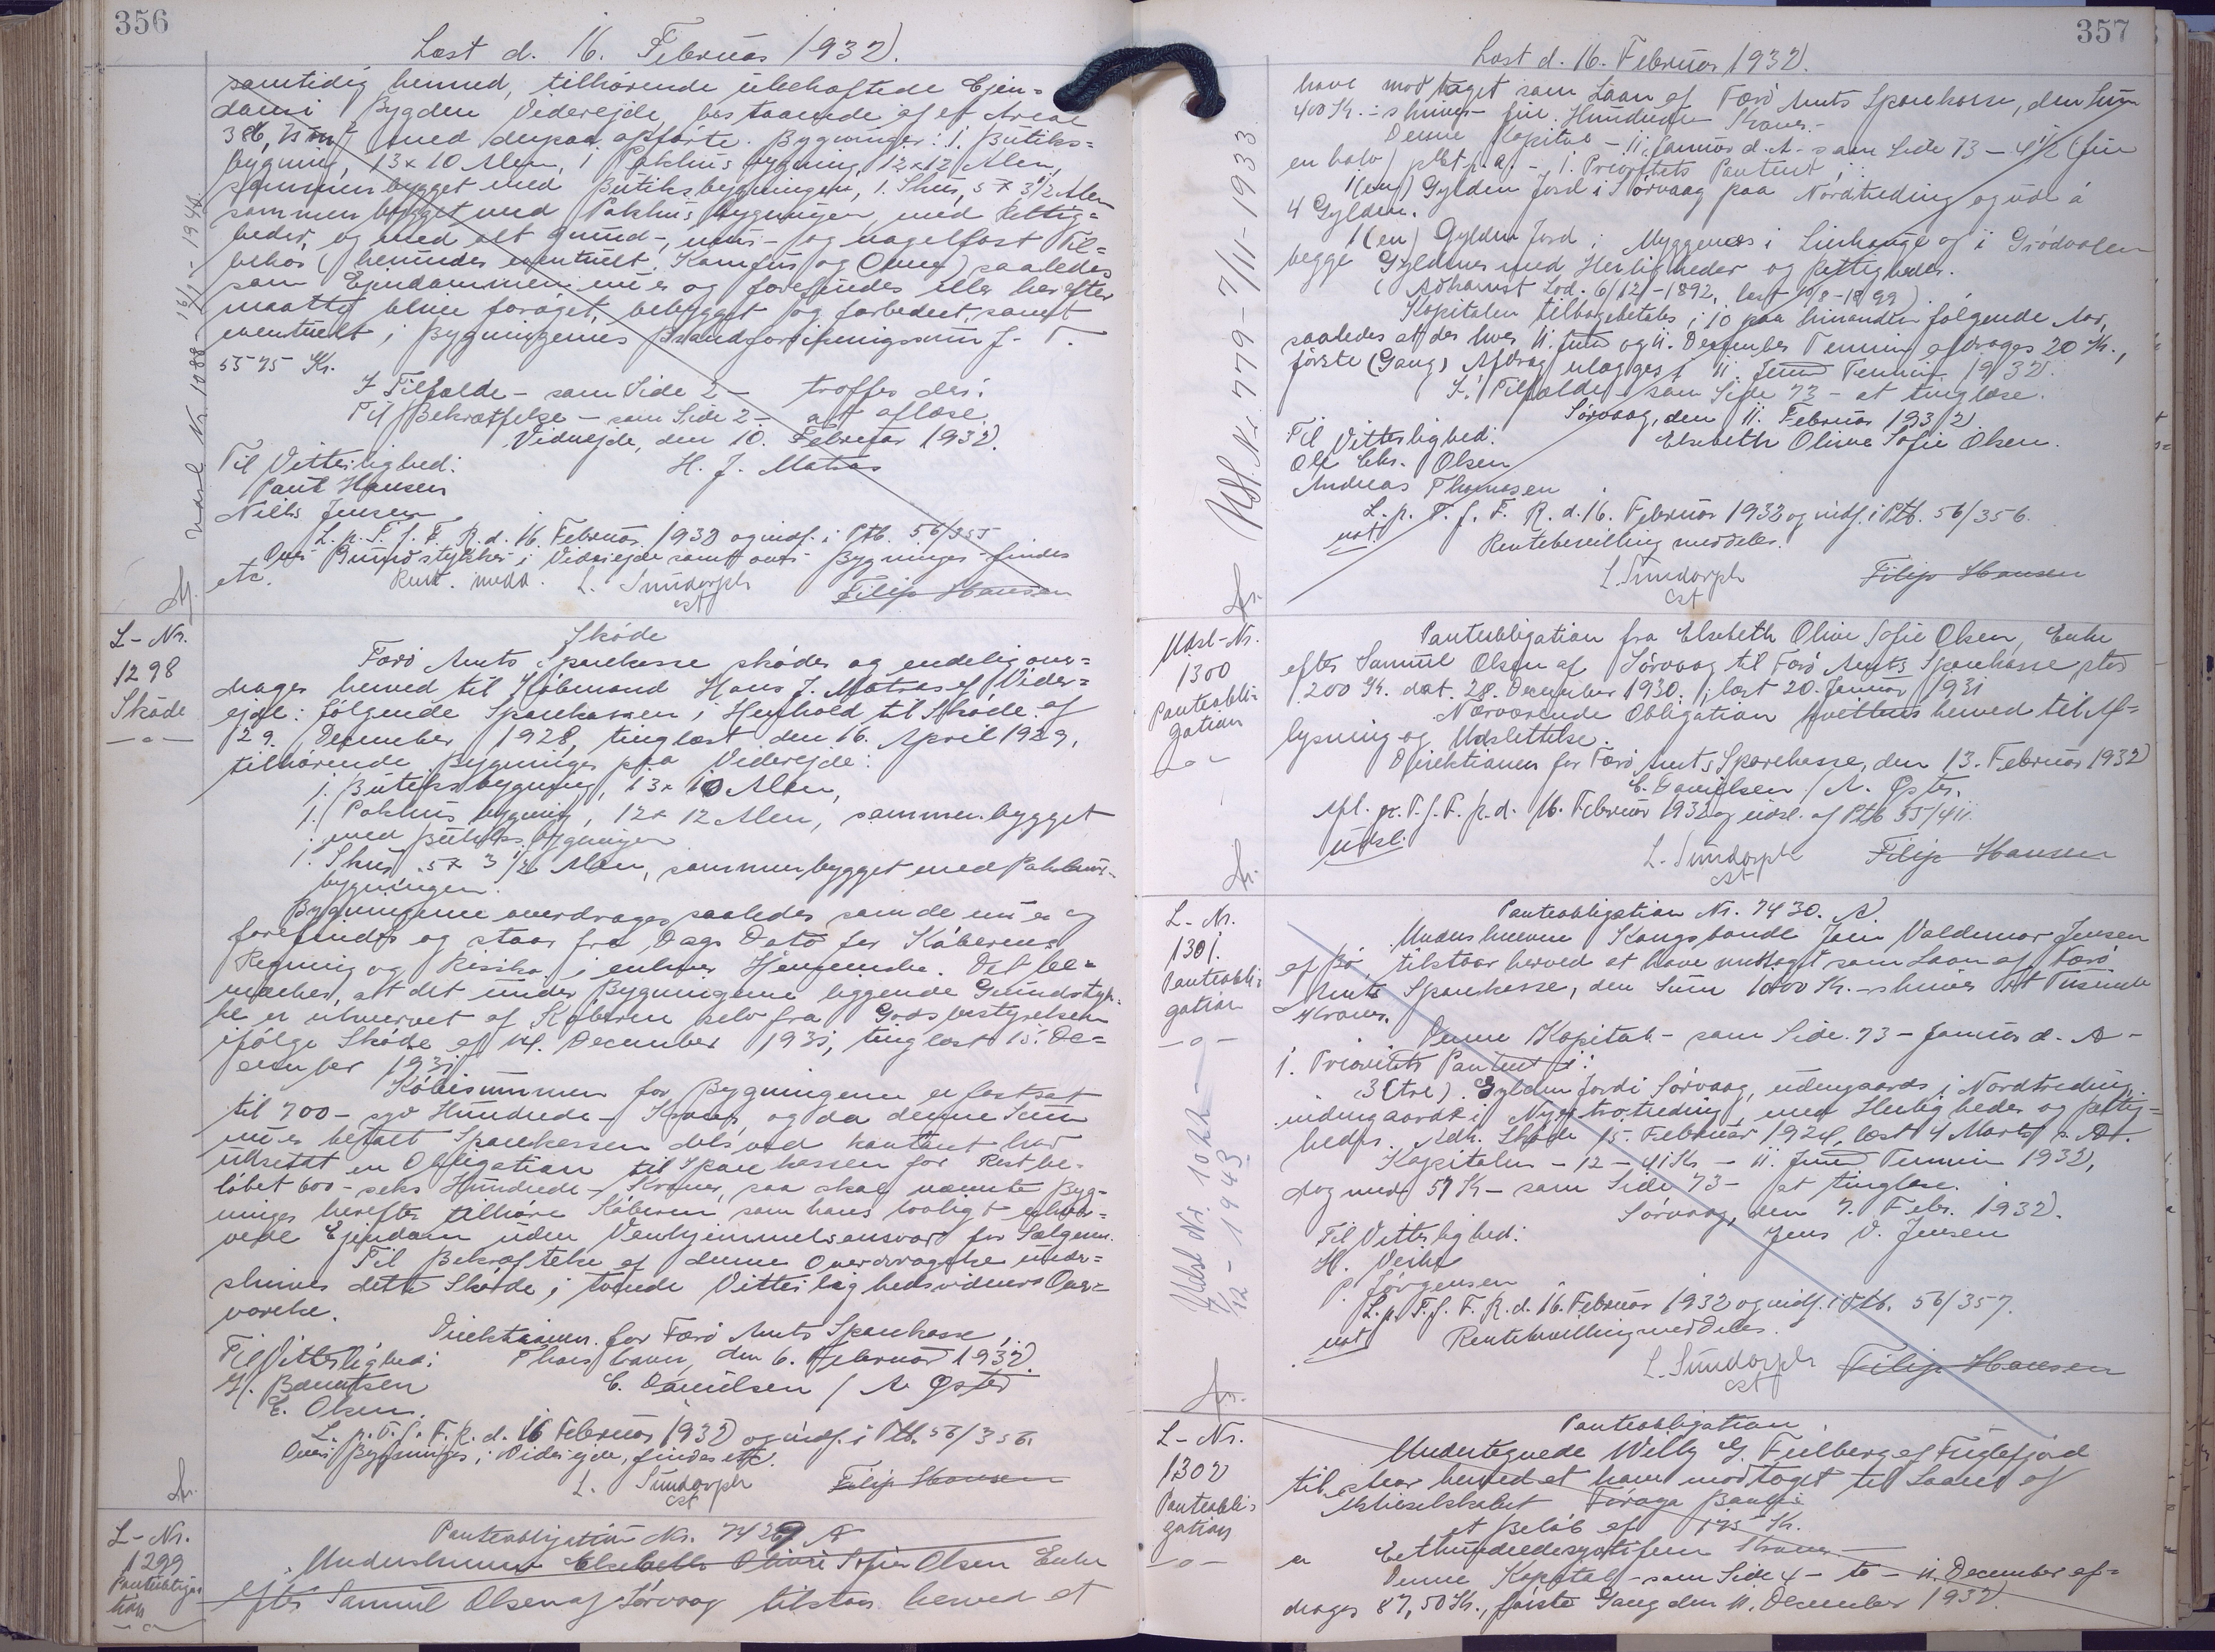 356
Læst d. 16. Februar 1932.
samtidig hermed, tilhørende ubehæftede Ejen-
dom i Bygden Viderejde, bestaaende af et Areal
med derpaa opførte Bygninger: 1. Butiks-
bygning, 13 x 10 Alen, 1 Pakhusbygning 12 x 12 Alen,
sammenbygget med Butiksbygningen, 1. Skur, 5 x 3 1/2 Alen
sammenbygget med Pakhusbygningen, med Rettig-
heder, og med alt grund-, mur- og nagelfast Til-
behør (herunder eventuelt Komfur og Ovne) saaledes
som Ejendommen nu er og forefindes eller herefter
maatte blive forøget, bebygget og forbedret, samt
eventuelt i Bygningernes Brandforsikringssum J. T.
5575 Kr.
I Tilfælde - som Side 2 - træffes der:
Til Bekræftelse - som Side 2 - at aflæse
Viderejde, den 10. Februar 1932.
Til Vitterlighed: H. J. Matras
Paul Hansen
Niels Jensen
L. p. T. f. F. R. d. 16. Februar 1932 og indf. i Ptb. 56/355
Over Grundstykker i Viderejde samt over Bygninger findes
etc. Rent. medd. L. Sundorph Filip Hansen
cst
Udsl. Nr. 1088 - 1940
L-Nr.
1298
Skøde
Skøde
Færø Amts Sparekasse skøder og endelig over-
drager herved til Købmand Hans J. Matras af Vider-
ejde: følgende Sparekassen i Henhold til Skøde af
29. December 1928, tinglæst den 16. April 1929,
tilhørende Bygninger paa Viderejde:
1. Butiksbygning, 13 x 10 Alen,
1. Pakhusbygning, 12 x 12 Alen, sammenbygget
med Butiksbygningen
1. Skur 5 x 3 1/2 Alen, sammenbygget med Pakhus-
bygningen.
Bygningerne overdrages saaledes som de nu er og
forefindes og staar fra Dags Dato for Køberens
Regning og Risiko i enhver Henseende. Det be-
mærkes, at det under Bygningerne liggende Grundstyk-
ke er erhvervet af Køberen selv fra Godsbestyrelsen
ifølge Skøde af 14. December 1931, tinglæst 15. De-
cember 1931
Købesummen for Bygningerne er fastsat
til 700 - syv Hundrede - Kroner, og da denne Sum
nu er betalt Sparekassen dels ved kontant har
udstedt en Obligation til Sparekassen for Restbe-
løbet 600 - seks Hundrede - Kroner, saa skal nævnte Byg-
ninger herefter tilhøre Køberen som hans lovligt erhver-
vede Ejendom uden Vanhjemmelsansvar for Sælgeren.
Til Bekræftelse af denne Overdragelse under-
skrives dette Skøde i tvende Vitterlighedsvidners Over-
værelse.
Direktionen for Færø Amts Sparekasse,
Til Vitterlighed: Thorshavn, den 6. Februar 1932.
H. Bærentsen C. Danielsen / A. Øster
E. Olsen.
L. p. T. f. F. R. d. 16 Februar 1932 og indf. i Ptb. 56/356.
Over Bygninger i Viderejde, findes etc.
L. Sundorph Filip Hansen
cst
L-Nr.
1299
Panteobliga
tion
Panteobligation Nr. 7429 A
Underskrevne Elsebeth Olivie Sofie Olsen Enke
efter Samuel Olsen af Sørvaag tilstaar herved at
357
Læst d. 16. Februar 1932.
have modtaget som Laan af Færø Amts Sparekasse, den Sum
400 Kr. skriver fire Hundrede Kroner.-
Denne Kapital - 11. Januar d. A. - som Side 73 - 4 1/2 (fire
en halv) pCt. p. a. - 1. Prioritets Panteret i:
1 (en) Gylden Jord i Sørvaag paa Nordtreding og ud a
4 Gylden.
1 (en) Gylden Jord i Myggenæs i Lierhauge og i Grødvolen
begge Gyldener med Herligheder og Rettigheder.
(Adkomst Sod. 6/12-1892, læst 10/8-1899)
Kapitalen tilbagebetales i 10 paa hinanden følgende Aar,
saaledes at der hver 11. Juni og 11. December Termin afdrages 20 Kr.,
første (Gang) Afdrag erlægges i 11. Juni Termin 1932.
I Tilfælde - som Side 73 - at tinglæse.
Sørvaag, den 11. Februar 1932
Til Vitterlighed: Elsebeth Olivie Sofie Olsen.
Ole Chr. Olsen
Andreas Thomasen
L. p. T. f. F. R. d. 16. Februar 1932 og indf. i Ptb. 56/356.
not Rentebevilling meddeles.
L. Sundorph Filip Hansen
cst
Udsl. Nr. 779 - 7/11 - 1933
Udsl-Nr.
1300
Panteobli-
gation
Panteobligation fra Elsebeth Olivie Sofie Olsen, Enke
efter Samuel Olsen af Sørvaag til Færø Amts Sparekasse stor
1200 Kr. dat. 28. December 1930. læst 20. Januar 1931
Nærværende Obligation kvitteres herved til Af-
lysning og Udslettelse.
Direktionen for Færø Amts Sparekasse, den 13. Februar 1932
C. Danielsen / A. Øster.
afl. p. T. f. F. R. d. 16. Februar 1932 og udsl. af Ptb 55/411
udsl.
L. Sundorph Filip Hansen
cst
L-Nr.
1301.
Panteobli-
gation
Panteobligation Nr. 7430. A.
Underskrevne Kongsbonde Jens Valdemar Jensen
af Bø, tilstaar herved at have modtaget som Laan af Færø
Amts Sparekasse, den Sum 1000 Kr. - skriver Et Tusinde
Kroner.
Denne Kapital - som Side 73 - Januar d. A -
1. Prioritets Panteret i:
3 (tre) Gylden Jord i Sørvaag, udengaards i Nordtreding
indengaards i Nygstrøtreding, med Herligheder og Rettig-
heder. Adk. Skøde 15. Februar 1924, læst 4 Marts s. A.
Kapitalen - 12 - 41 Kr. - 11. Juni Termin 1932,
dog med 57 Kr - som Side 73 - at tinglæse.
Sørvaag, den 7. Febr. 1932.
Til Vitterlighed: Jens V. Jensen
H. Veihe
P. Jørgensen
L. p. T. f. F. R. d. 16. Februar 1932 og indf. i Ptb. 56/357.
not Rentebevilling meddeles.
L. Sundorph Filip Hansen
cst
Udsl Nr. 1022
12 - 1943
L-Nr.
1302
Panteobli-
gation
Panteobligation
Undertegnede Willy G. Feilberg af Fuglefjord
tilstaar herved at have modtaget til Laans af
Aktieselskabet Føroya Banki
et Beløb af 175 Kr.
er Ethundredesyvtifem Kroner
Denne Kapital - som Side 4 - to - 11. December af-
drages 87,50 Kr., første Gang den 11. December 1932